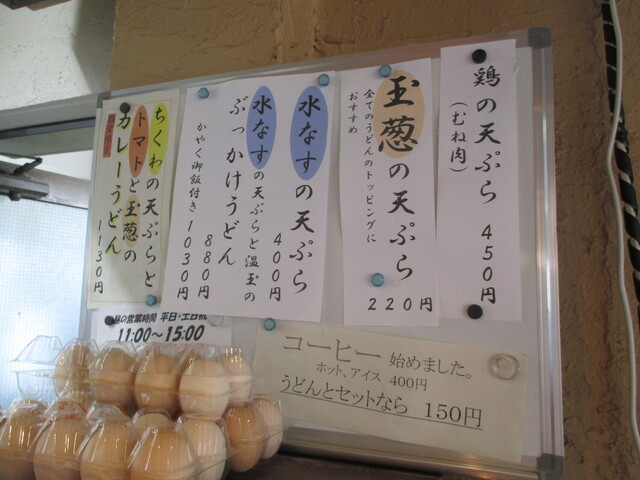 鶏の天ぷら 450円
(むね肉)
玉葱の天ぷら 220円
全てのうどんのトッピングに
おすすめ
水なすの天ぷら 400円
水なすの天ぷらと温玉の
ぶっかけうどん 880円
かやく御飯付き 1030円
ちくわの天ぷらと
トマトと玉葱の
カレーうどん 1130円
昼の営業時間 平日・土日祝
11:00〜15:00
コーヒー 始めました。
ホット、アイス 400円
うどんとセットなら 150円